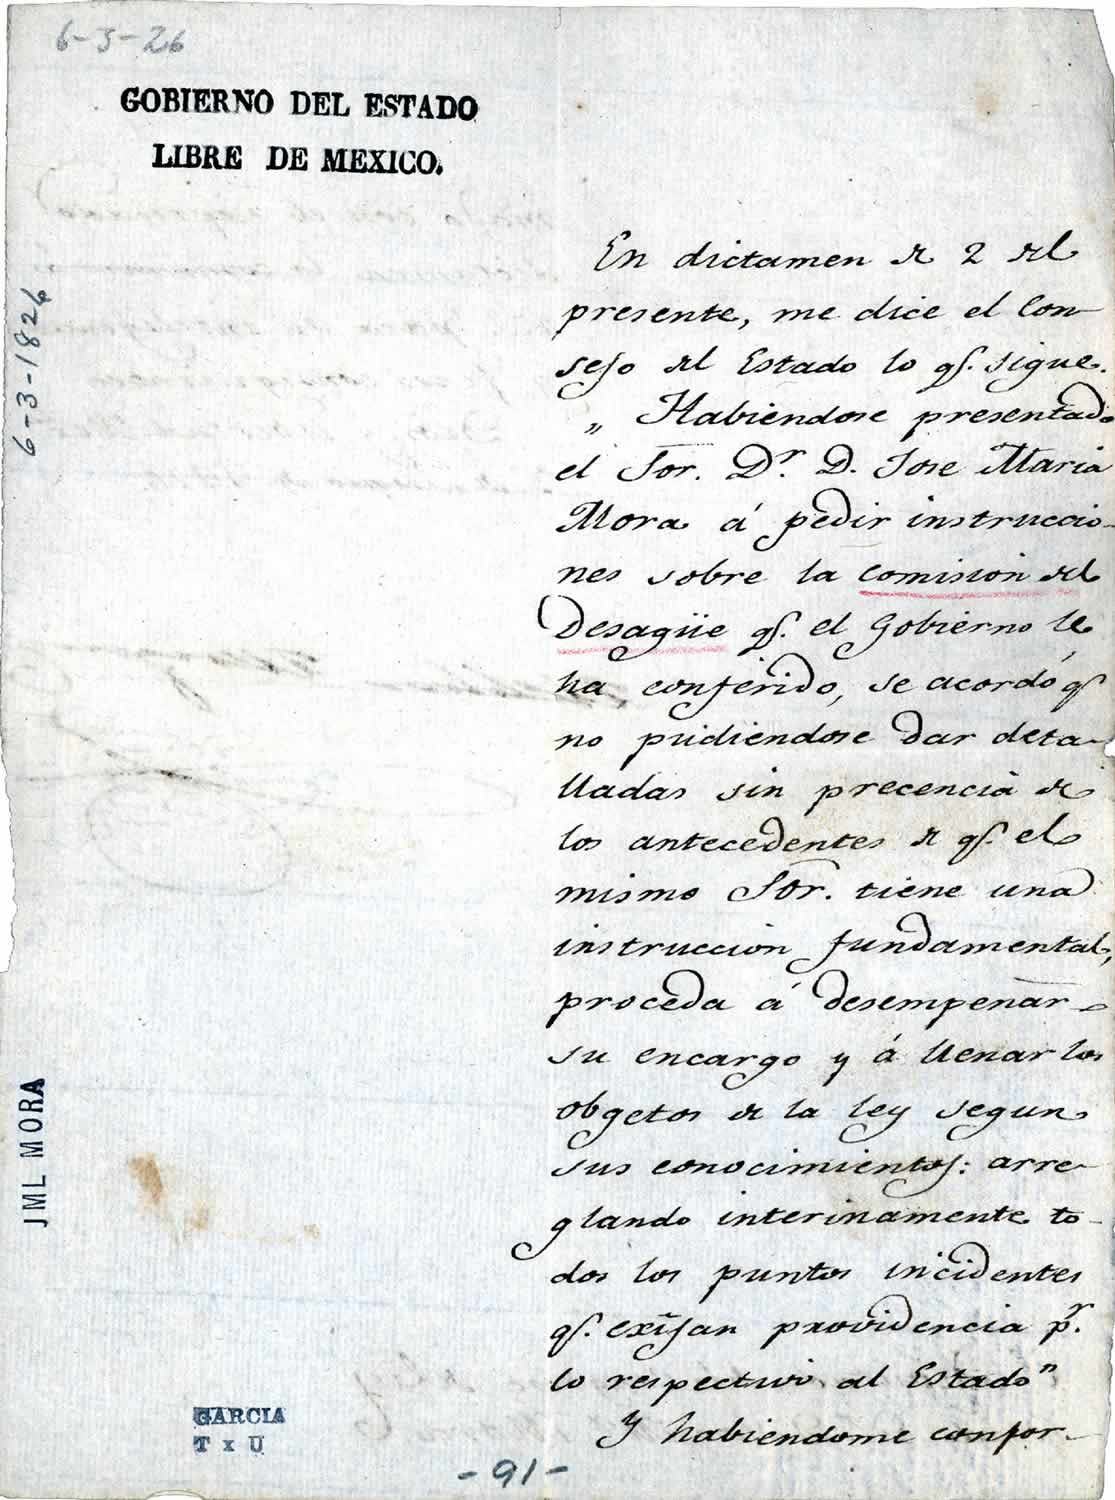 6-3-26
GOBIERNO DEL ESTADO
LIBRE DE MEXICO.
6-3-1826
En dictamen de 2 del
presente, me dice el Con-
sejo del Estado lo qe. sigue.
„ Habiendose presentado
el Sor. Dr. D. Jose Maria
Mora á pedir instruccio-
nes sobre la comision del
Desagüe qe. el Gobierno le
ha conferido, se acordó qe
no pudiendose dar deta-
lladas sin precencia de
los antecedentes de qe. el
mismo Sor. tiene una
instruccion fundamental,
proceda á desempeñar
su encargo y á llenar los
obgetos de la ley segun
sus conocimientos: arre-
glando interinamente to-
dos los puntos incidentes
qe. exijan providencia pr.
lo respectivo al Estado"
Y habiendome confor-
JML MORA
GARCIA
T x U
-91-